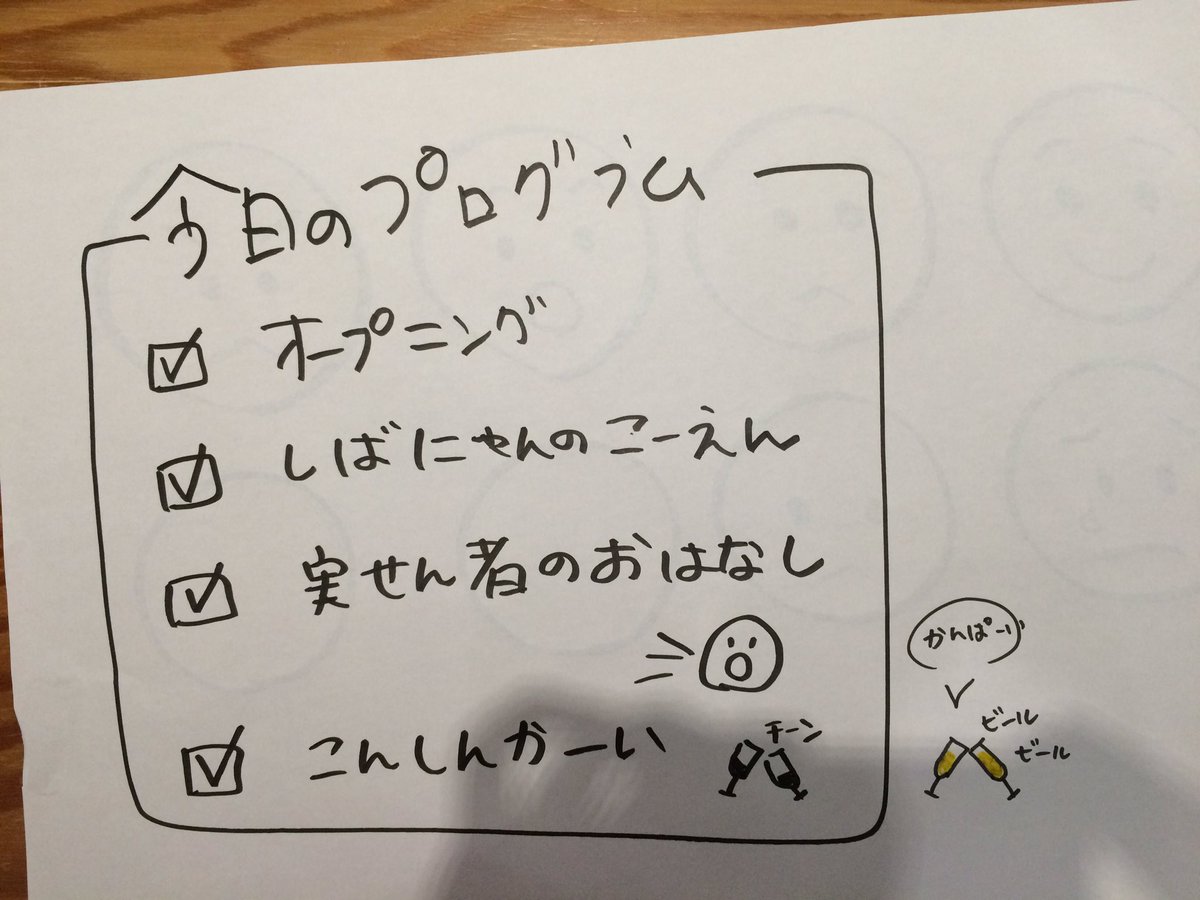 今日のプログラム
オープニング
しばにゃんのこーえん
実せん者のおはなし
こんしんかーい
チーン
かんぱーい
ビール
ビール